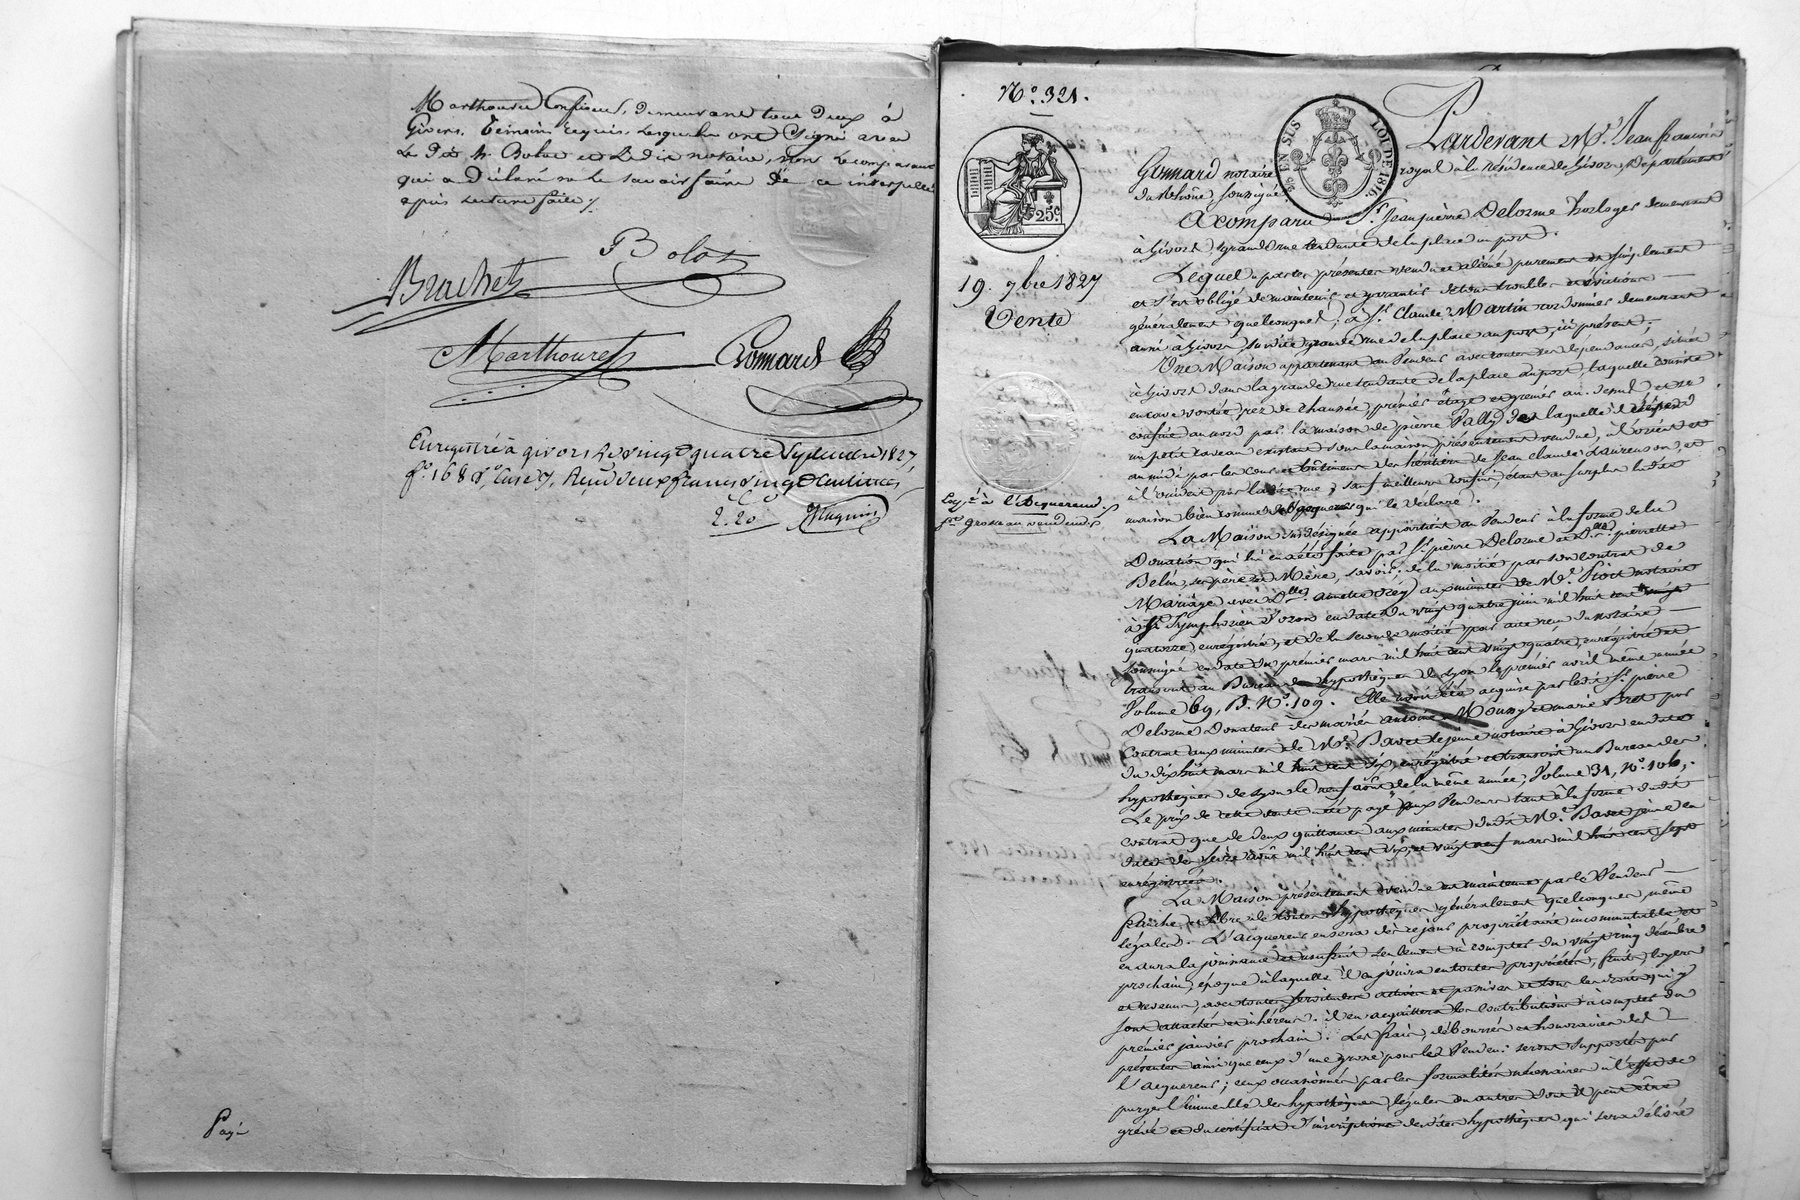 Marthouret Confiseur, demeurant tous deux à
Givors, Témoins requis, lesquels ont Signé avec
Le dit Sr. Bolot et Ledit notaire, non le comparant
qui a déclaré ne le savoir faire de ce interpellé
après lecture faite ;
Bolot
Brachet
Marthouret Gonnard
Enregistré à givors le vingt quatre Septembre 1827,
fo. 168 Vo, Case 7, Reçu deux francs vingt Centimes,
2.20
Payé
No. 321.
EN SUS
LOI DE 1816
25 c
19. 7bre 1827
Vente
Expé à l'Acquereur.
Grosse au vendeur
Pardevant Me. Jean françois
Gonnard notaire royal à la Résidence de Givors, Département
du Rhône, soussigné
A comparu Sr. Jean pierre Delorme horloger demeurant
à Givors grande rue tendante de la place au port.
Lequel a par les présentes vendu et aliéné purement et simplement
et s'est obligé de maintenir et garantir de tous troubles et évictions
généralement quelconques, à Sr. Claude Martin cordonnier demeurant
aussi à Givors, susdite grande rue de la place au port, ici présent,
Une Maison appartenant au Vendeur avec toutes ses dépendances, située
à Givors dans la grande rue tendante de la place au port, laquelle consiste
en cave voutée, rez de chaussée, premier étage et grenier au dessus et se
confine au nord par la maison de pierre Vally de laquelle il dépend
un petit caveau existant sous la maison présentement vendue, à l'orient et
au midi par les cour et bâtiment des héritiers de Jean Claude Laurenson, et
à l'occident par la dite rue, sauf meilleurs confins, étant au surplus ladite
maison bien connue de l'acquereur qui le déclare.
La Maison susdésignée appartient au Vendeur à la forme de la
Donation qui lui en a été faite par Sr. pierre Delorme et D. pierrette
Belin, ses père et Mère, savoir: de la moitié par son contrat de
Mariage avec Dlle. aux minutes de Me. notaire
à St. Symphorien d'ozon en date du vingt quatre juin mil huit cent
quatorze, enregistré, et de la seconde moitié par acte reçu du notaire
soussigné en date du premier mars mil huit cent vingt quatre, enregistré et
transcrit au Bureau des hypothèques de Lyon le premier avril même année
Volume 69, B. No. 109. Elle avoit été acquise par ledit Sr. pierre
Delorme Donateur des mariés antoine Mouzy et marie par
Contrat aux minutes de Me. Bavet le jeune notaire à Givors en date
du dix huit mars mil huit cent six, enregistré et transcrit au Bureau des
hypothèques de Lyon le neuf août de la même année, Volume 31, No. 106.
Le prix de cette vente a été payé aux Vendeurs tant à la forme dudit
contrat que de deux quittances aux minutes dudit Me. Bavet jeune en
dates des seize août mil huit cent six, et vingt neuf mars mil huit cent sept
enregistrées.
La Maison présentement vendue est maintenue par le Vendeur
franche et libre de toutes hypothèques généralement quelconques même
légales. L'acquereur en sera dès ce jour propriétaire incommutable et
en aura la jouissance et usufruit seulement à compter du vingt cinq décembre
prochain, époque à laquelle il en jouira en toutes propriétés, fruits, loyers
et revenus, avec toutes servitudes actives et passives et tous les droits qui y
sont attachés et inhérens. il en acquittera les contributions à compter du
premier janvier prochain. Les frais, déboursés et honoraires des
présentes ainsi que ceux d'une grosse pour le Vendeur seront supportés par
l'acquereur; ceux occasionnés par les formalités nécessaires à l'effet de
purger l'immeuble des hypothèques légales ou autres dont il peut être
grévé et du certificat d'inscriptions desdites hypothèques qui sera délivré